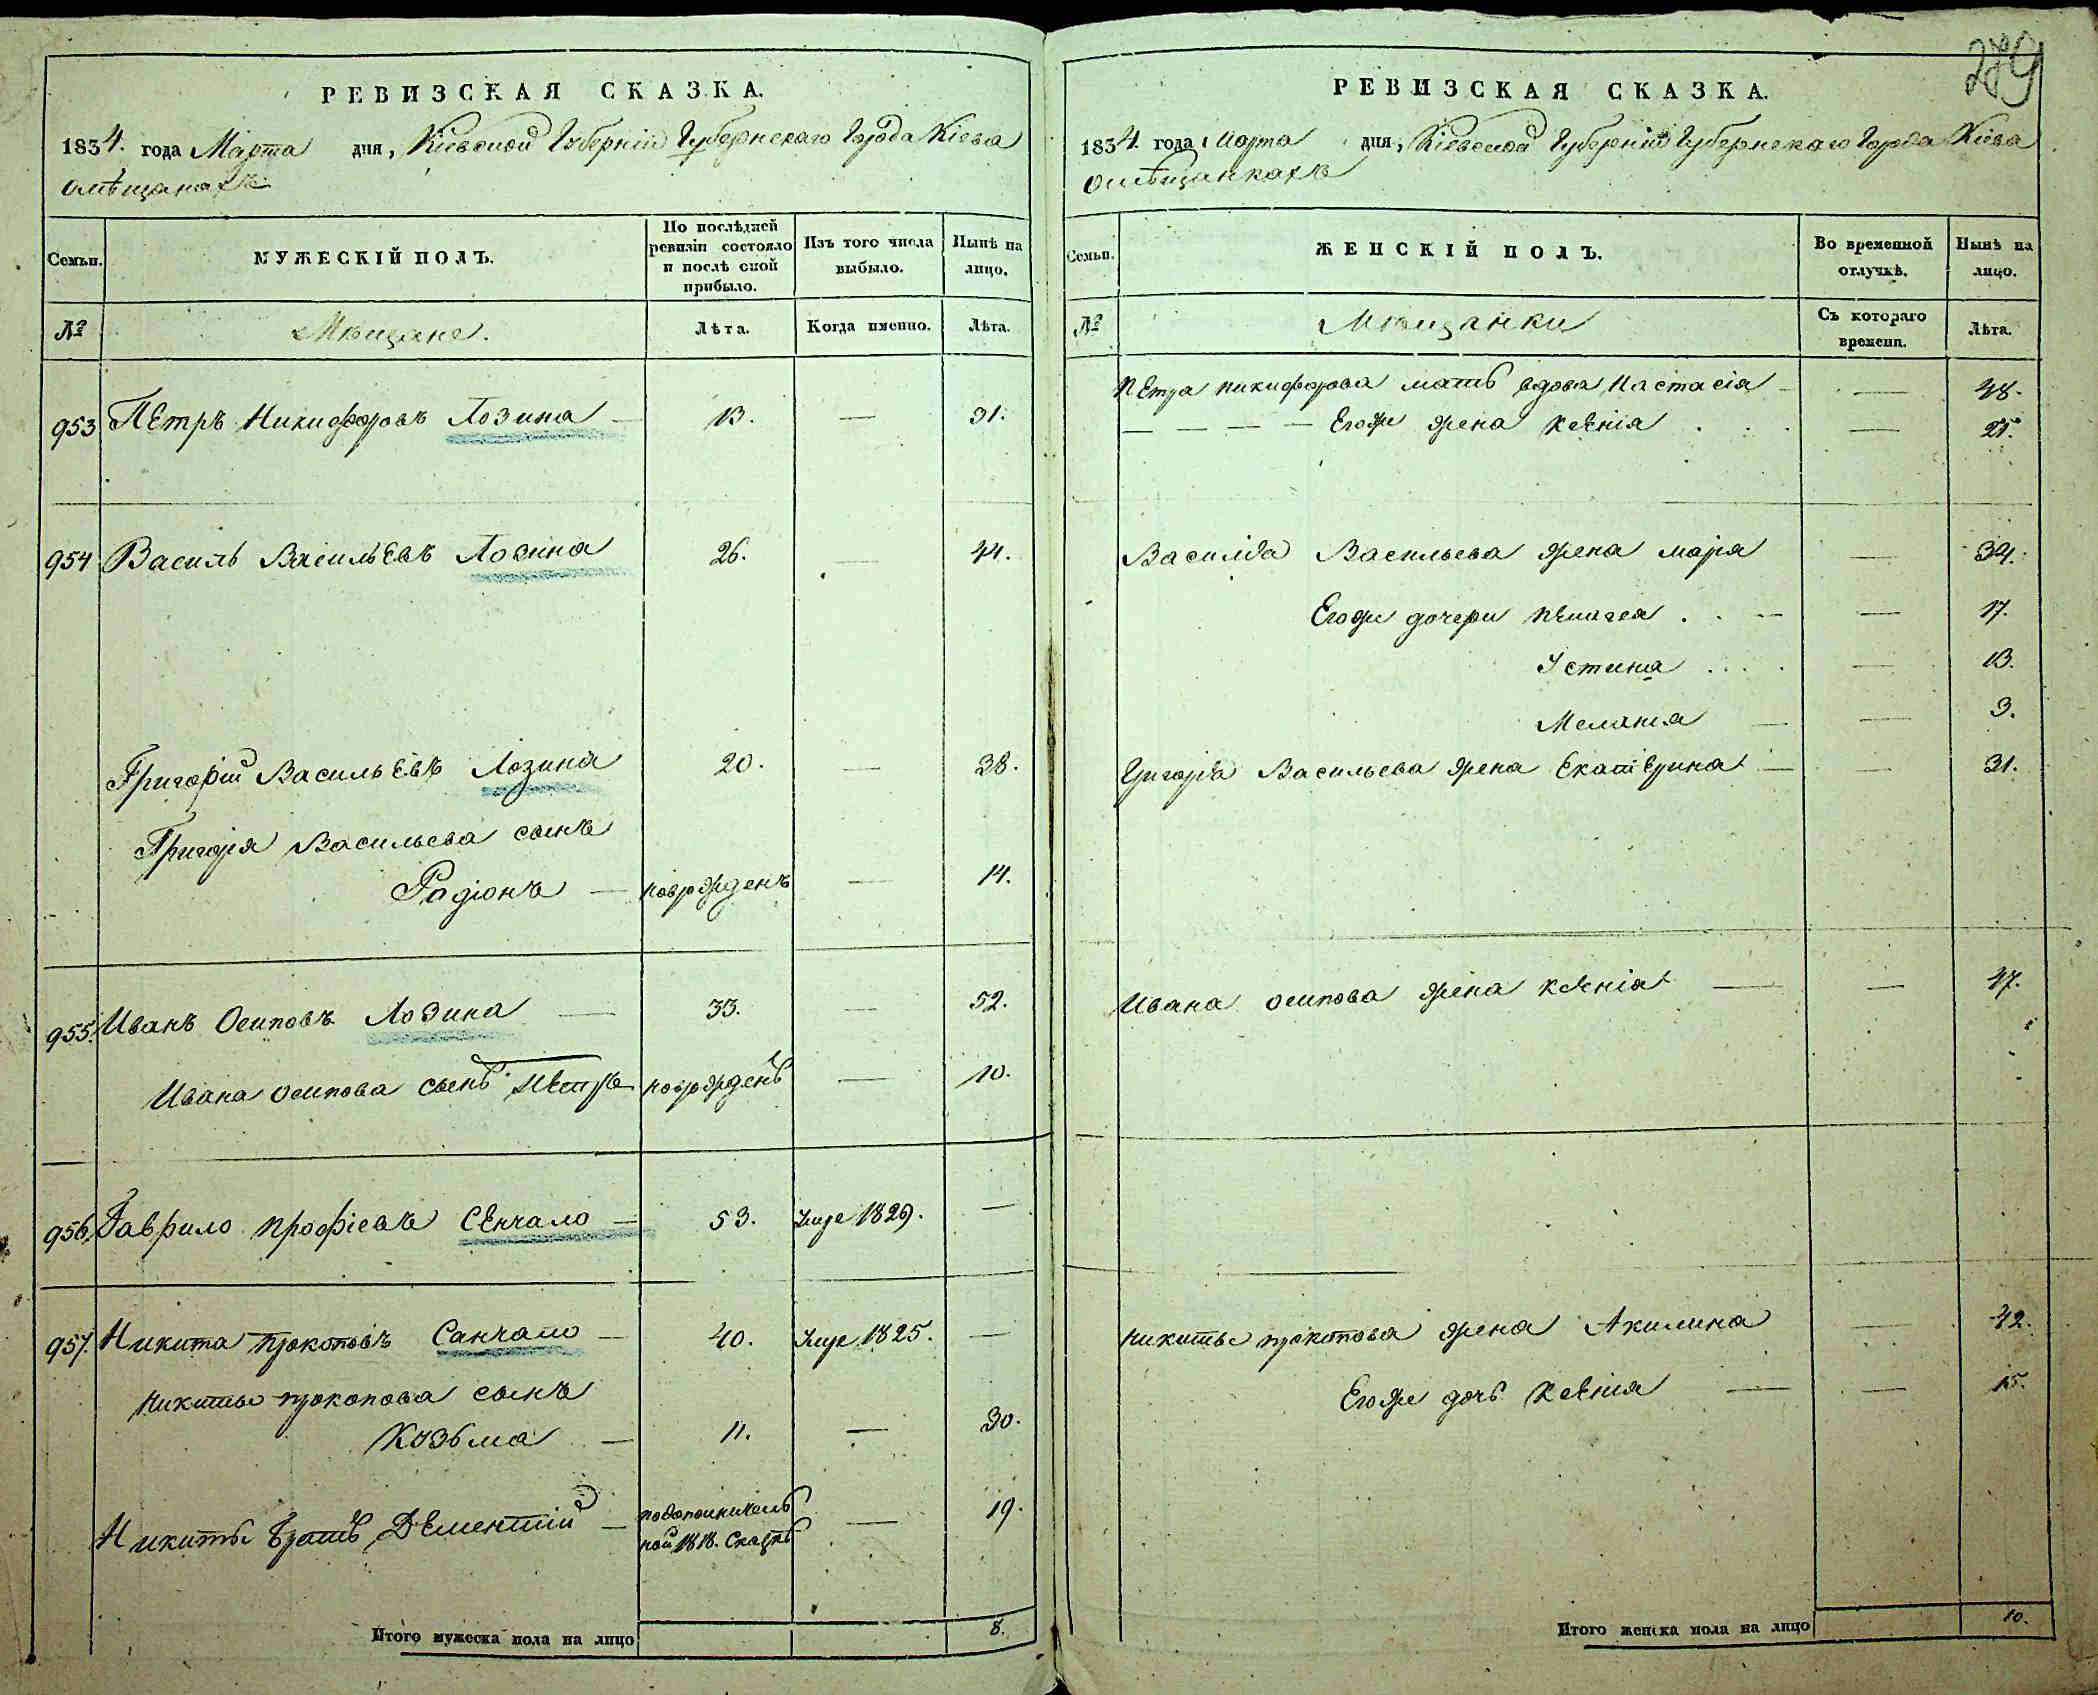 РЕВИЗСКАЯ СКАЗКА.
1834. года Марта дня, Кіевской Губерніи Губернскаго Города Кіева
омѣщанахъ
Семьи.
МУЖЕСКІЙ ПОЛЪ.
По послѣдней ревизіи состояло и послѣ оной прибыло.
Изъ того числа выбыло.
Нынѣ на лицо.
№
Мѣщане.
Лѣта.
Когда именно.
Лѣта.
953 Петръ Никифоровъ Лозина — 13. — 31.
954 Василь Васильевъ Лозина 26. — 44.
Григорій Васильевъ Лозина 20. — 38.
Григорія Васильева сынъ
Радіонъ — новорожденъ — 14.
955. Иванъ Осиповъ Лозина — 33. — 52.
Ивана Осипова сынъ Петръ новорожденъ — 10.
956. Гаврило Профіевъ Сенчало — 53. Умре 1829. —
957. Никита Прокоповъ Санчало — 40. Умре 1825. —
Никиты Прокопова сынъ
Козьма — 11. — 30.
Никиты братъ Дементій — подополнитель
ной 1818. Сказкѣ — 19.
Итого мужеска пола на лицо 8.
289
РЕВИЗСКАЯ СКАЗКА.
1834. года Марта дня, Кіевской Губерніи Губернскаго Города Кіева
омѣщанкахъ
Семьи.
ЖЕНСКІЙ ПОЛЪ.
Во временной отлучкѣ.
Нынѣ на лицо.
№
Мѣщанки
Съ котораго времени.
Лѣта.
Петра Никифорова мать вдова Настасія — — 48.
— — — — Егоже жена Ксенія . . . — 25.
Василія Васильева жена Марія — 34.
Егоже дочери Пелагея . . — — 17.
Устинія . . . . — 13.
Меланія — — 3.
Григорія Васильева жена Екатерина — — 31.
Ивана Осипова жена Ксенія — — 47.
Никиты Прокопова жена Акилина — 42.
Егоже дочь Ксенія — — 15.
Итого женска пола на лицо 10.